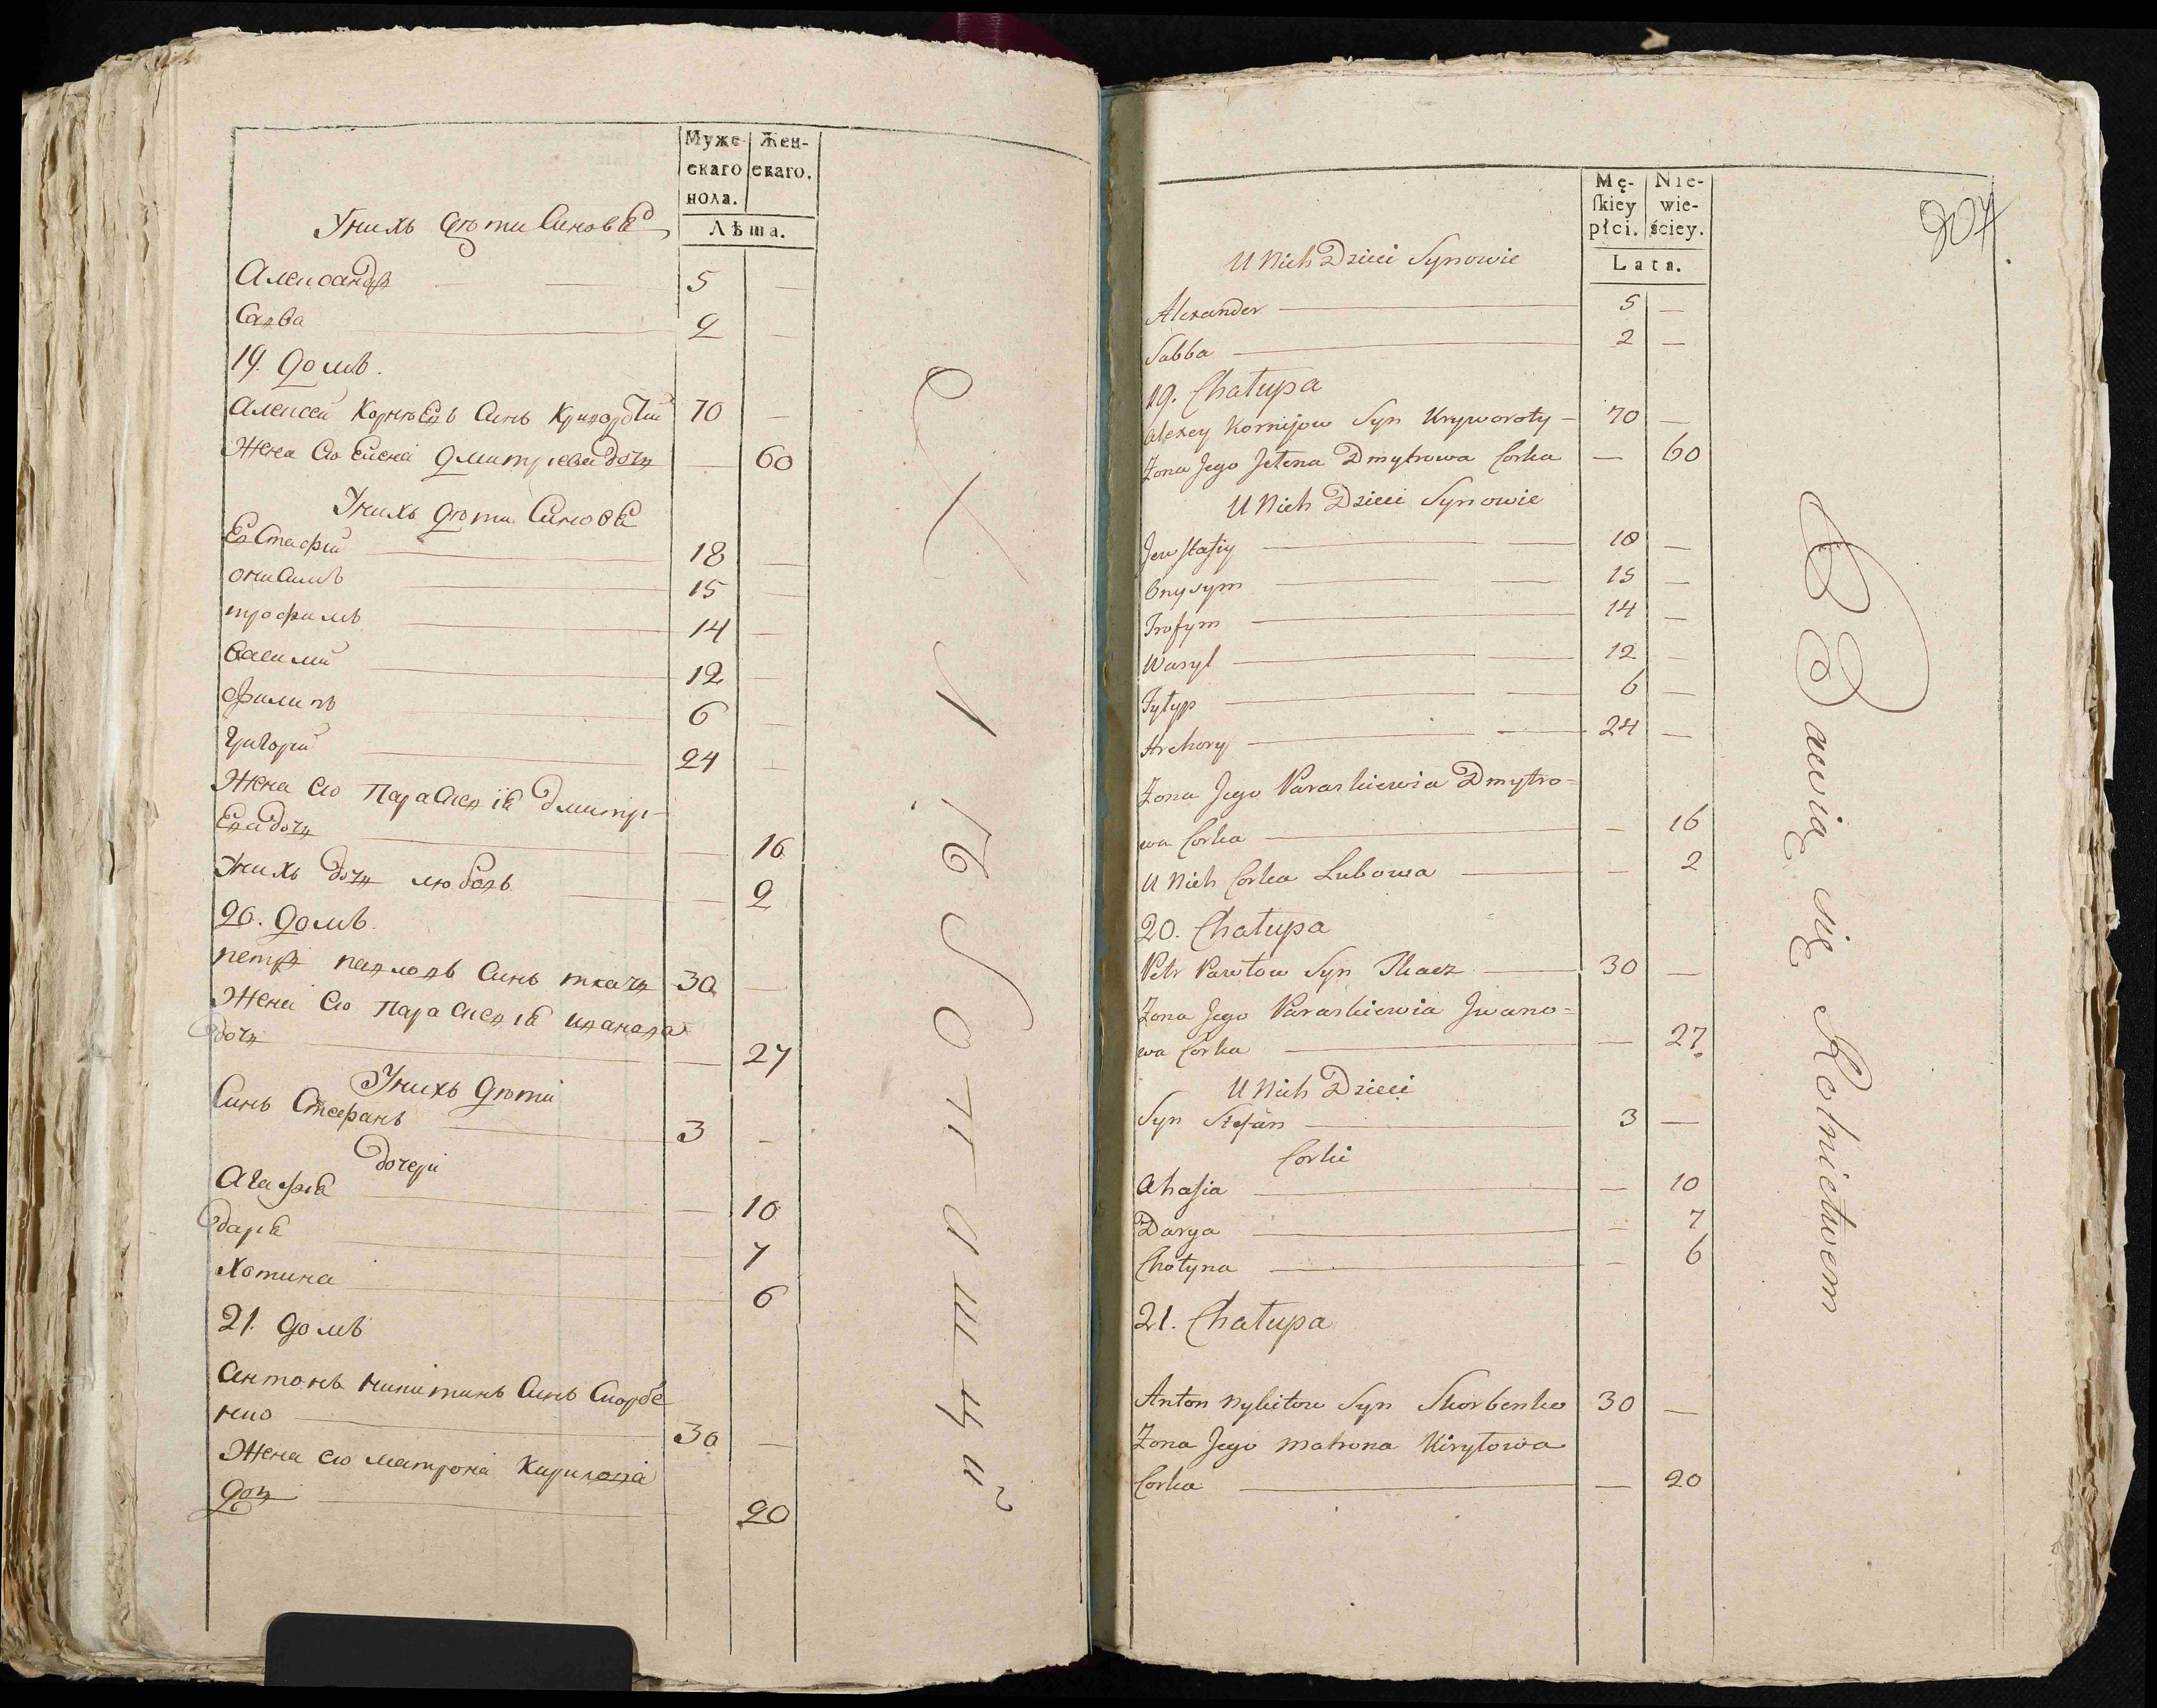 Муже- Жен-
скаго скаго.
пола.
Лѣта.
Унихъ дѣти Синовѣ
Александръ 5 —
Савва 2 —
19. домъ.
Алексей Корнѣевъ Синъ Криворотій 70 —
Жена Его Елена Дмитриева дочъ — 60
Унихъ дѣти Синовѣ
Евстафій 18 —
онисимъ 15 —
трофимъ 14 —
василий 12 —
Филипъ 6 —
Григорий 24 —
Жена Его Параскевія дмитри-
Ева дочъ — 16
Унихъ дочъ любовъ — 2
20. домъ.
петръ павловъ Синъ ткачъ 30 —
Жена Его Параскевія иванова
дочъ — 27
Унихъ дѣти
Синъ Стефанъ 3 —
дочери
Агафія — 10
дарія — 7
Хотина — 6
21. домъ
Антонъ никитинъ Синъ Скорбе
нко 30 —
Жена его матрона Кирилова
дочъ — 20
207
Mę- Nie-
skiey wie-
płci. ściey.
Lata.
U Nich Dzieci Synowie
Alexander 5 —
Sabba 2 —
19. Chałupa
Alexey Kornijow Syn Kryworoty — 70 —
Zona Jego Jełena Dmytrowa Corka — 60
U Nich Dzieci Synowie
Jewstafiy 18 —
Onysym 15 —
Trofym 14 —
Wasyl 12 —
Fyłyp 6 —
Hrehory 24 —
Zona Jego Paraskiewia Dmytro=
wa Corka — 16
U Nich Corka Lubowa — 2
20. Chałupa
Petr Pawłow Syn Tkacz 30 —
Zona Jego Paraskiewia Jwano=
wa Corka — 27
U Nich Dzieci
Syn Stefan 3 —
Corki
Ahafia — 10
Darya — 7
Chotyna — 6
21. Chałupa
Anton Nykitow Syn Skorbenko 30 —
Zona Jego Matrona Kiryłowa
Corka — 20
Bawią się Rolnictwem